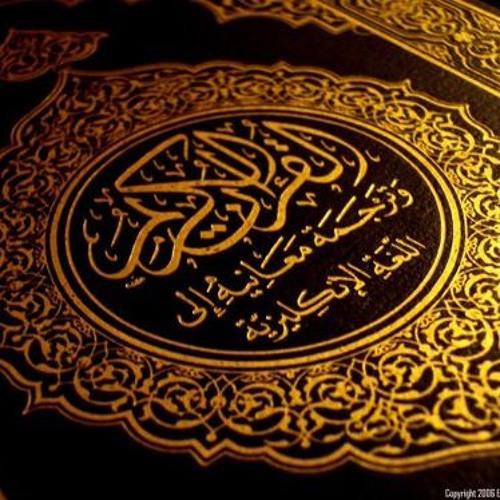 القرآن الكريم
وَتَرجَمَة مَعَانِيهِ إلى
اللّغَةِ الإنكليزيَّة
Copyright 2006